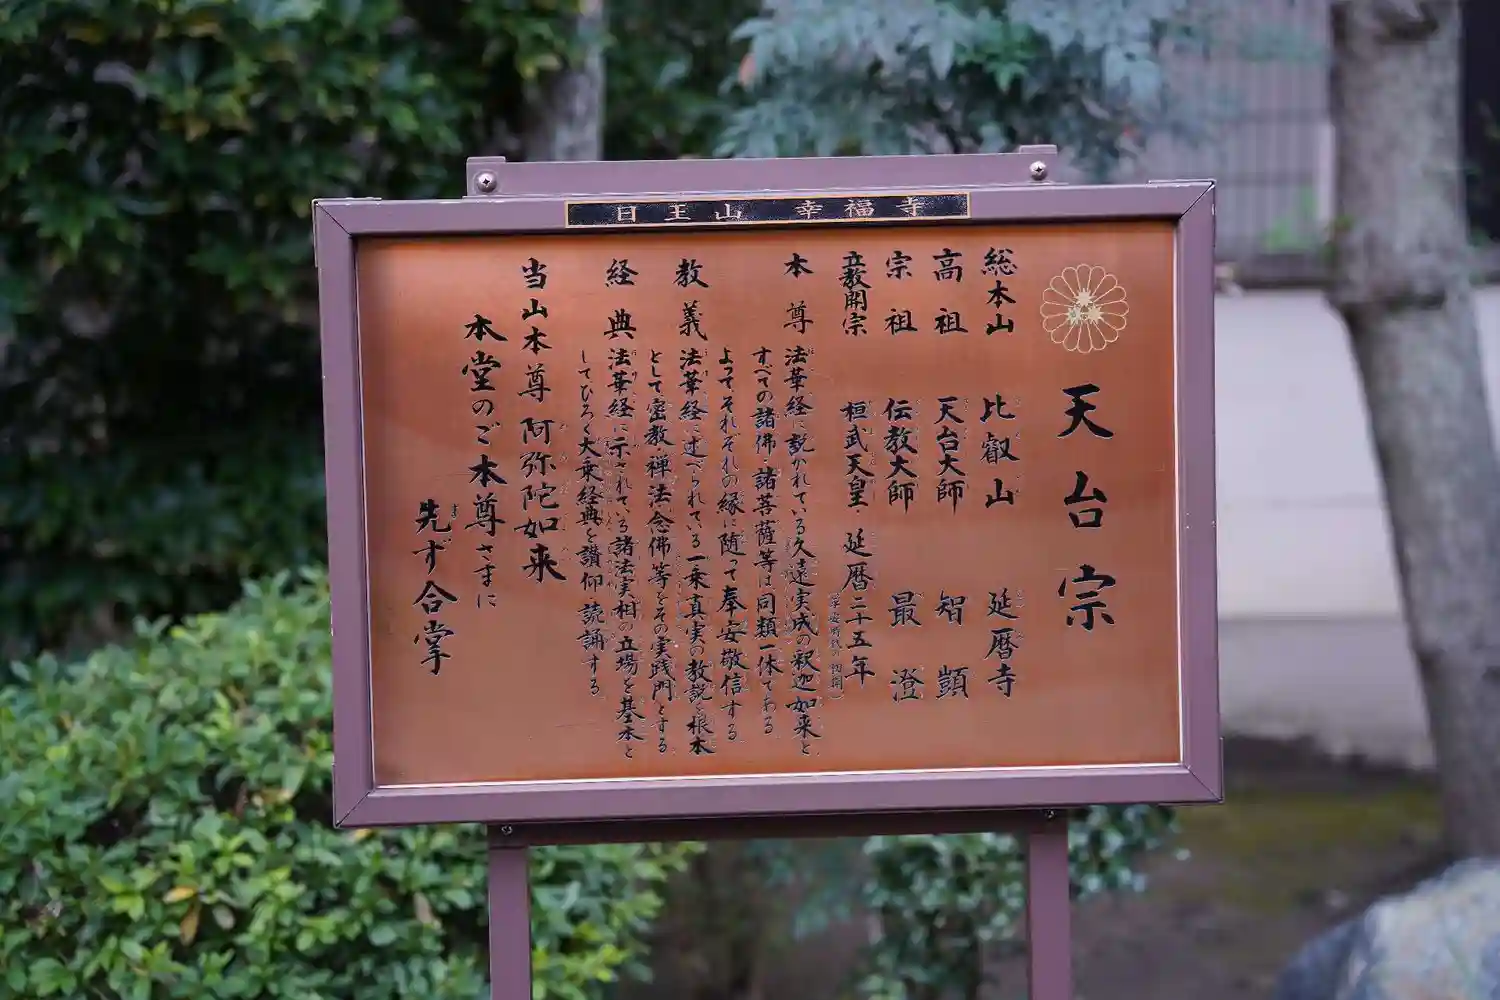 日王山 幸福寺
天台宗
総本山 比叡山 延暦寺
高祖 天台大師 智顗
宗祖 伝教大師 最澄
立教開宗 桓武天皇 延暦二十五年
本尊 法華経に説かれている久遠実成の釈迦如来と
すべての諸佛・諸菩薩等は同類一体である
よってそれぞれの縁に随って奉安敬信する
教義 法華経に述べられている一乗真実の教説を根本
として密教・禅法・念佛等をその実践門とする
経典 法華経に示されている諸法実相の立場を基本と
してひろく大乗経典を讃仰・読誦する
当山本尊 阿弥陀如来
本堂のご本尊さまに
先ず合掌